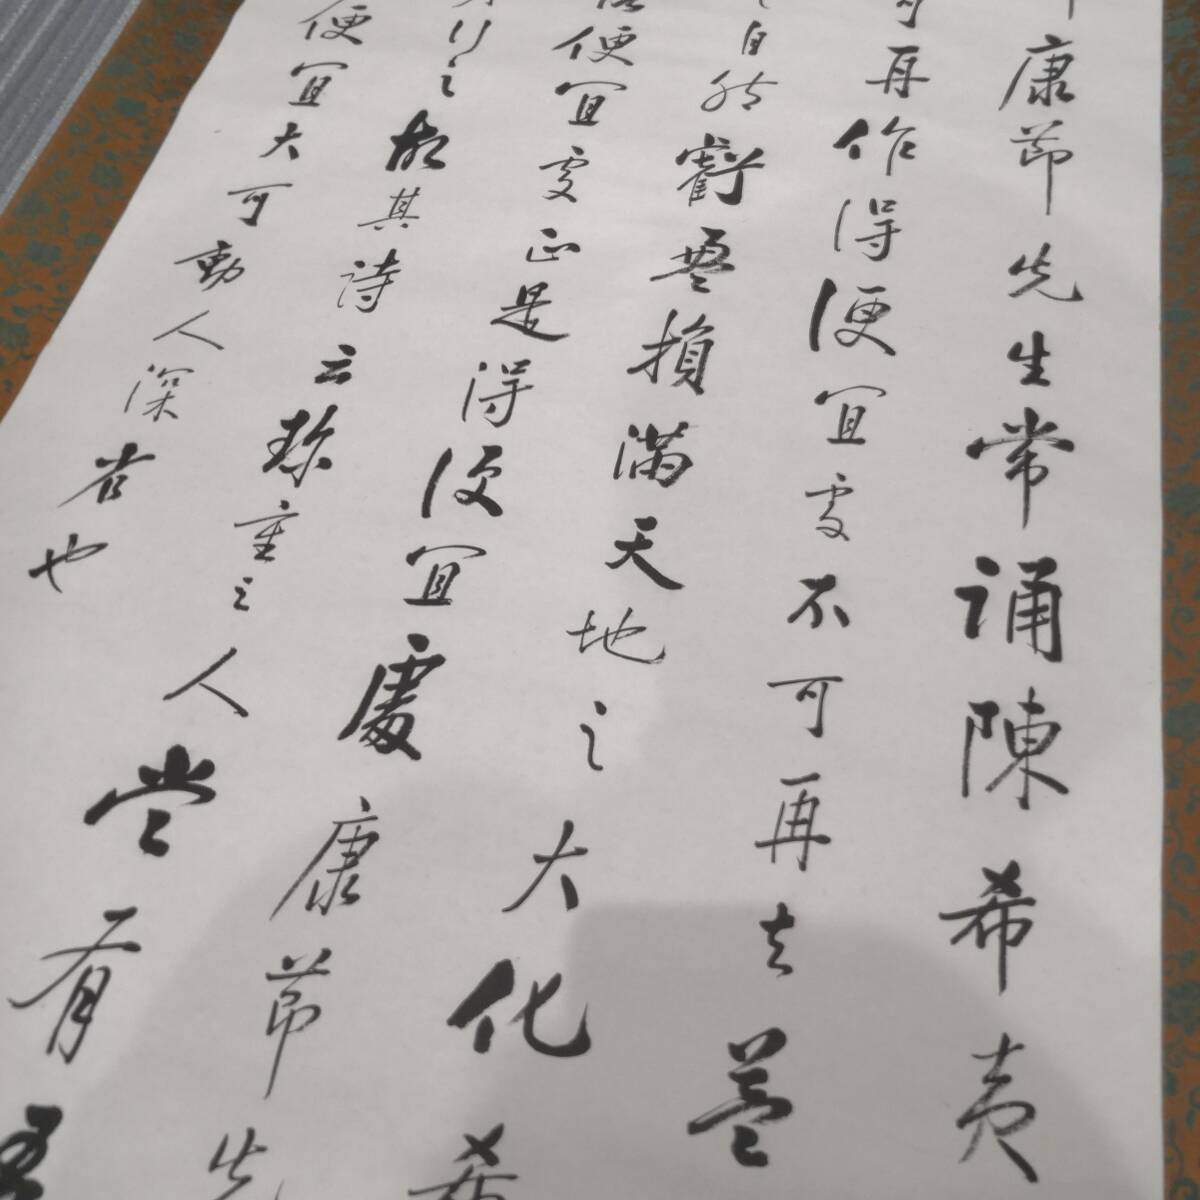 康節先生常誦陳希夷
可再作得便宜處不可再去蓋
自然虧盈損滿天地之大化希
便宜處正是得便宜處康節先
行之故其詩云珍重之人嘗有吾
便宜大可動人深省也